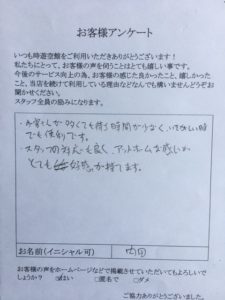 お客様アンケート
いつも時遊空館をご利用いただきありがとうございます！
私たちにとって、お客様の声を伺うことはとても嬉しい事です。
今後のサービス向上の為、お客様の感じた良かったこと、嬉しかったこと、当店を続けて利用している理由などなんでも構いませんどうぞお聞かせください。
スタッフ全員の励みになります。
・お客さんが多くても待つ時間が少なく、いそがしい時
でも便利です。
・スタッフの対応も良く、アットホームな感じが
とても好感が持てます。
お名前(イニシャル可)
お客様の声をホームページなどで掲載させていただいてもよろしいでしょうか？ はい 匿名で ダメ
ご協力ありがとうございました。